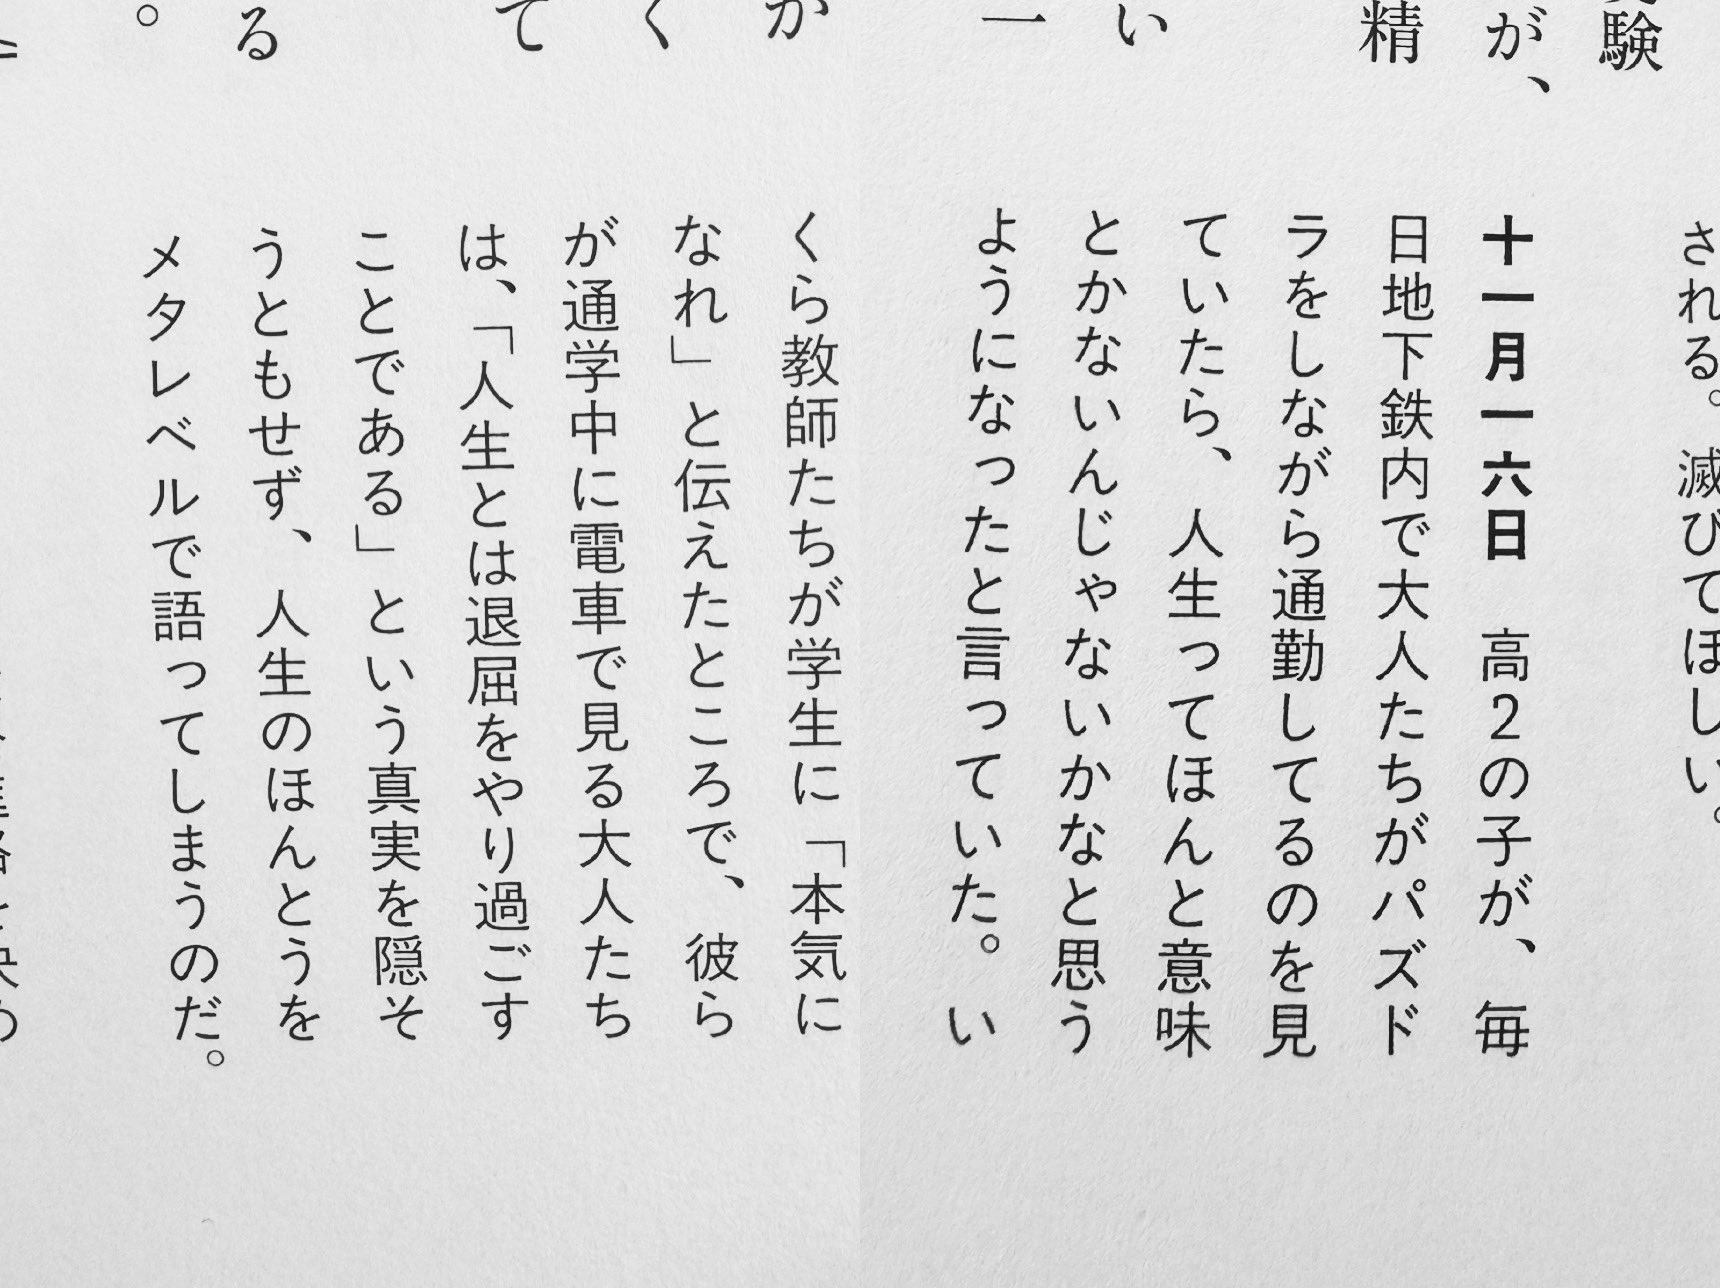 験
が、
精
い
一
か
く
て
る
。
される。滅びてほしい。
十一月一六日　高２の子が、毎
日地下鉄内で大人たちがパズド
ラをしながら通勤してるのを見
ていたら、人生ってほんと意味
とかないんじゃないかなと思う
ようになったと言っていた。い
くら教師たちが学生に「本気に
なれ」と伝えたところで、彼ら
が通学中に電車で見る大人たち
は、「人生とは退屈をやり過ごす
ことである」という真実を隠そ
うともせず、人生のほんとうを
メタレベルで語ってしまうのだ。